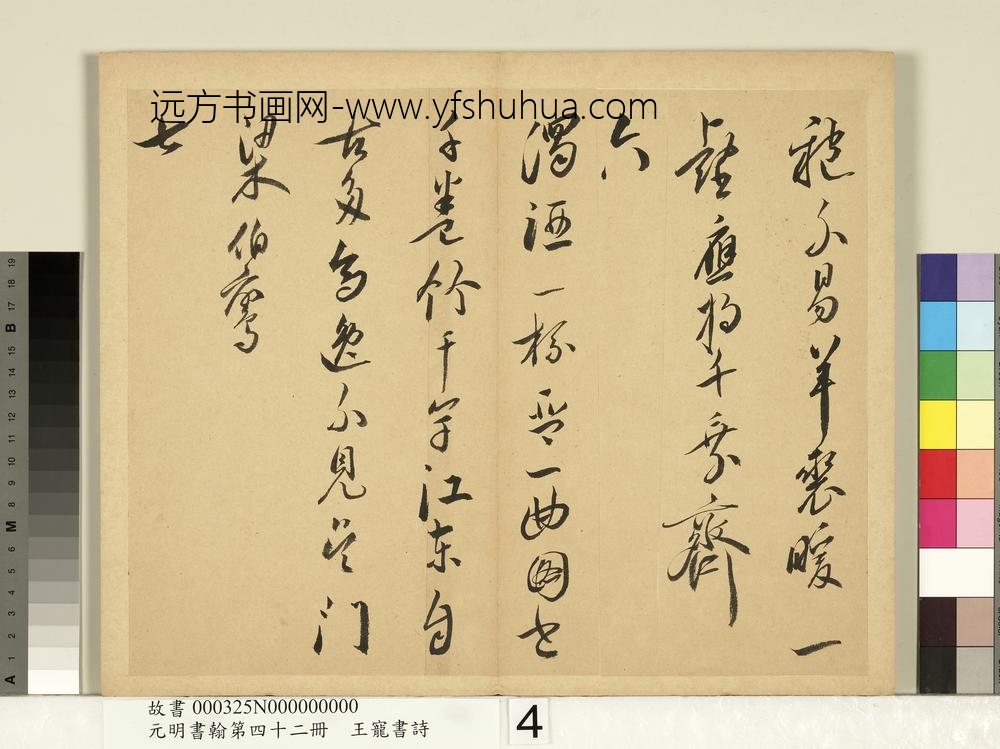 远方书画网-www.yfshuhua.com
不易羊裘暖一
壑應將千乘齊
六
濁酒一杯琴一曲圖書
千卷竹千竿江東自
古多高逸不見吳門
梁伯鸞
七
故書 000325N000000000
元明書翰第四十二冊 王寵書詩
4
A 1 2 3 4 5 6 M 8 9 10 11 12 13 14 15 B 17 18 19